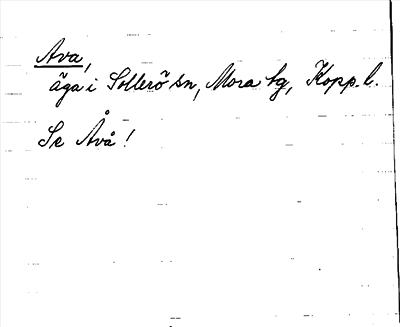 Ava,
äga i Sollerö sn, Mora tg, Kopp. l.
Se Åvå!